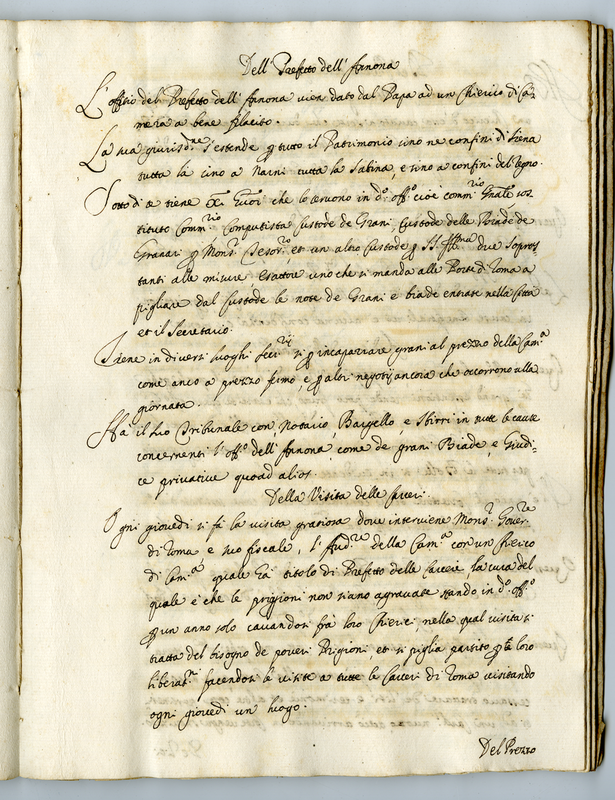 Dell Prefetto dell' Annona
L'offitio del Prefetto dell' Annona vien dato dal Papa ad un Chierico di Ca=
mera a bene placito.
La sua giurisd.ne s'estende p tutto il Patrimonio sino ne confini di Siena
tutta la sino a Narni tutta la Sabina, e sino a confini del Regno.
Sotto di se tiene che lo servono in d.o off.o cioè comm.rio Gnale sos
tituto Comm.rio Computista Custode de Grani, Custode delle Biade de
Granari p Mons.r Tesor.ro, et un altro Custode p due Sopras
tanti alle misure Esattore uno che si manda alle Porte di Roma a
pigliare dal Custode le note de Grani e biade entrate nella Città
et il Secretario.
Tiene in diversi luoghi p incaparrare grani al prezzo della Cam.a
come anco a prezzo fermo, e p altri negotij ancora che occorrono alla
giornata.
Ha il suo Tribunale con Notario, Bargello, e Sbirri in tutte le cause
concernenti l'off.o dell' Annona, come de grani Biade, e Giudi=
ce privative quoad alios.
Della Visita delle Carceri.
Ogni giovedi si fà la visita gratiosa dove interviene Mons.r Gover.re
di Roma e suo fiscale, l'Aud.re della Cam.a con un Chierico
di Cam.a quale hà titolo di Prefetto delle Carceri, la cura del
quale è che le prigioni non siano agravate stando in d.o off.o
p un anno solo cavandosi frà loro Chierici, nella qual visita si
tratta del bisogno de poveri Prigioni et si piglia partito p la loro
liberat.ne facendosi le visite a tutte le Carceri di Roma visitando
ogni giovedi un luogo.
Del Prezzo